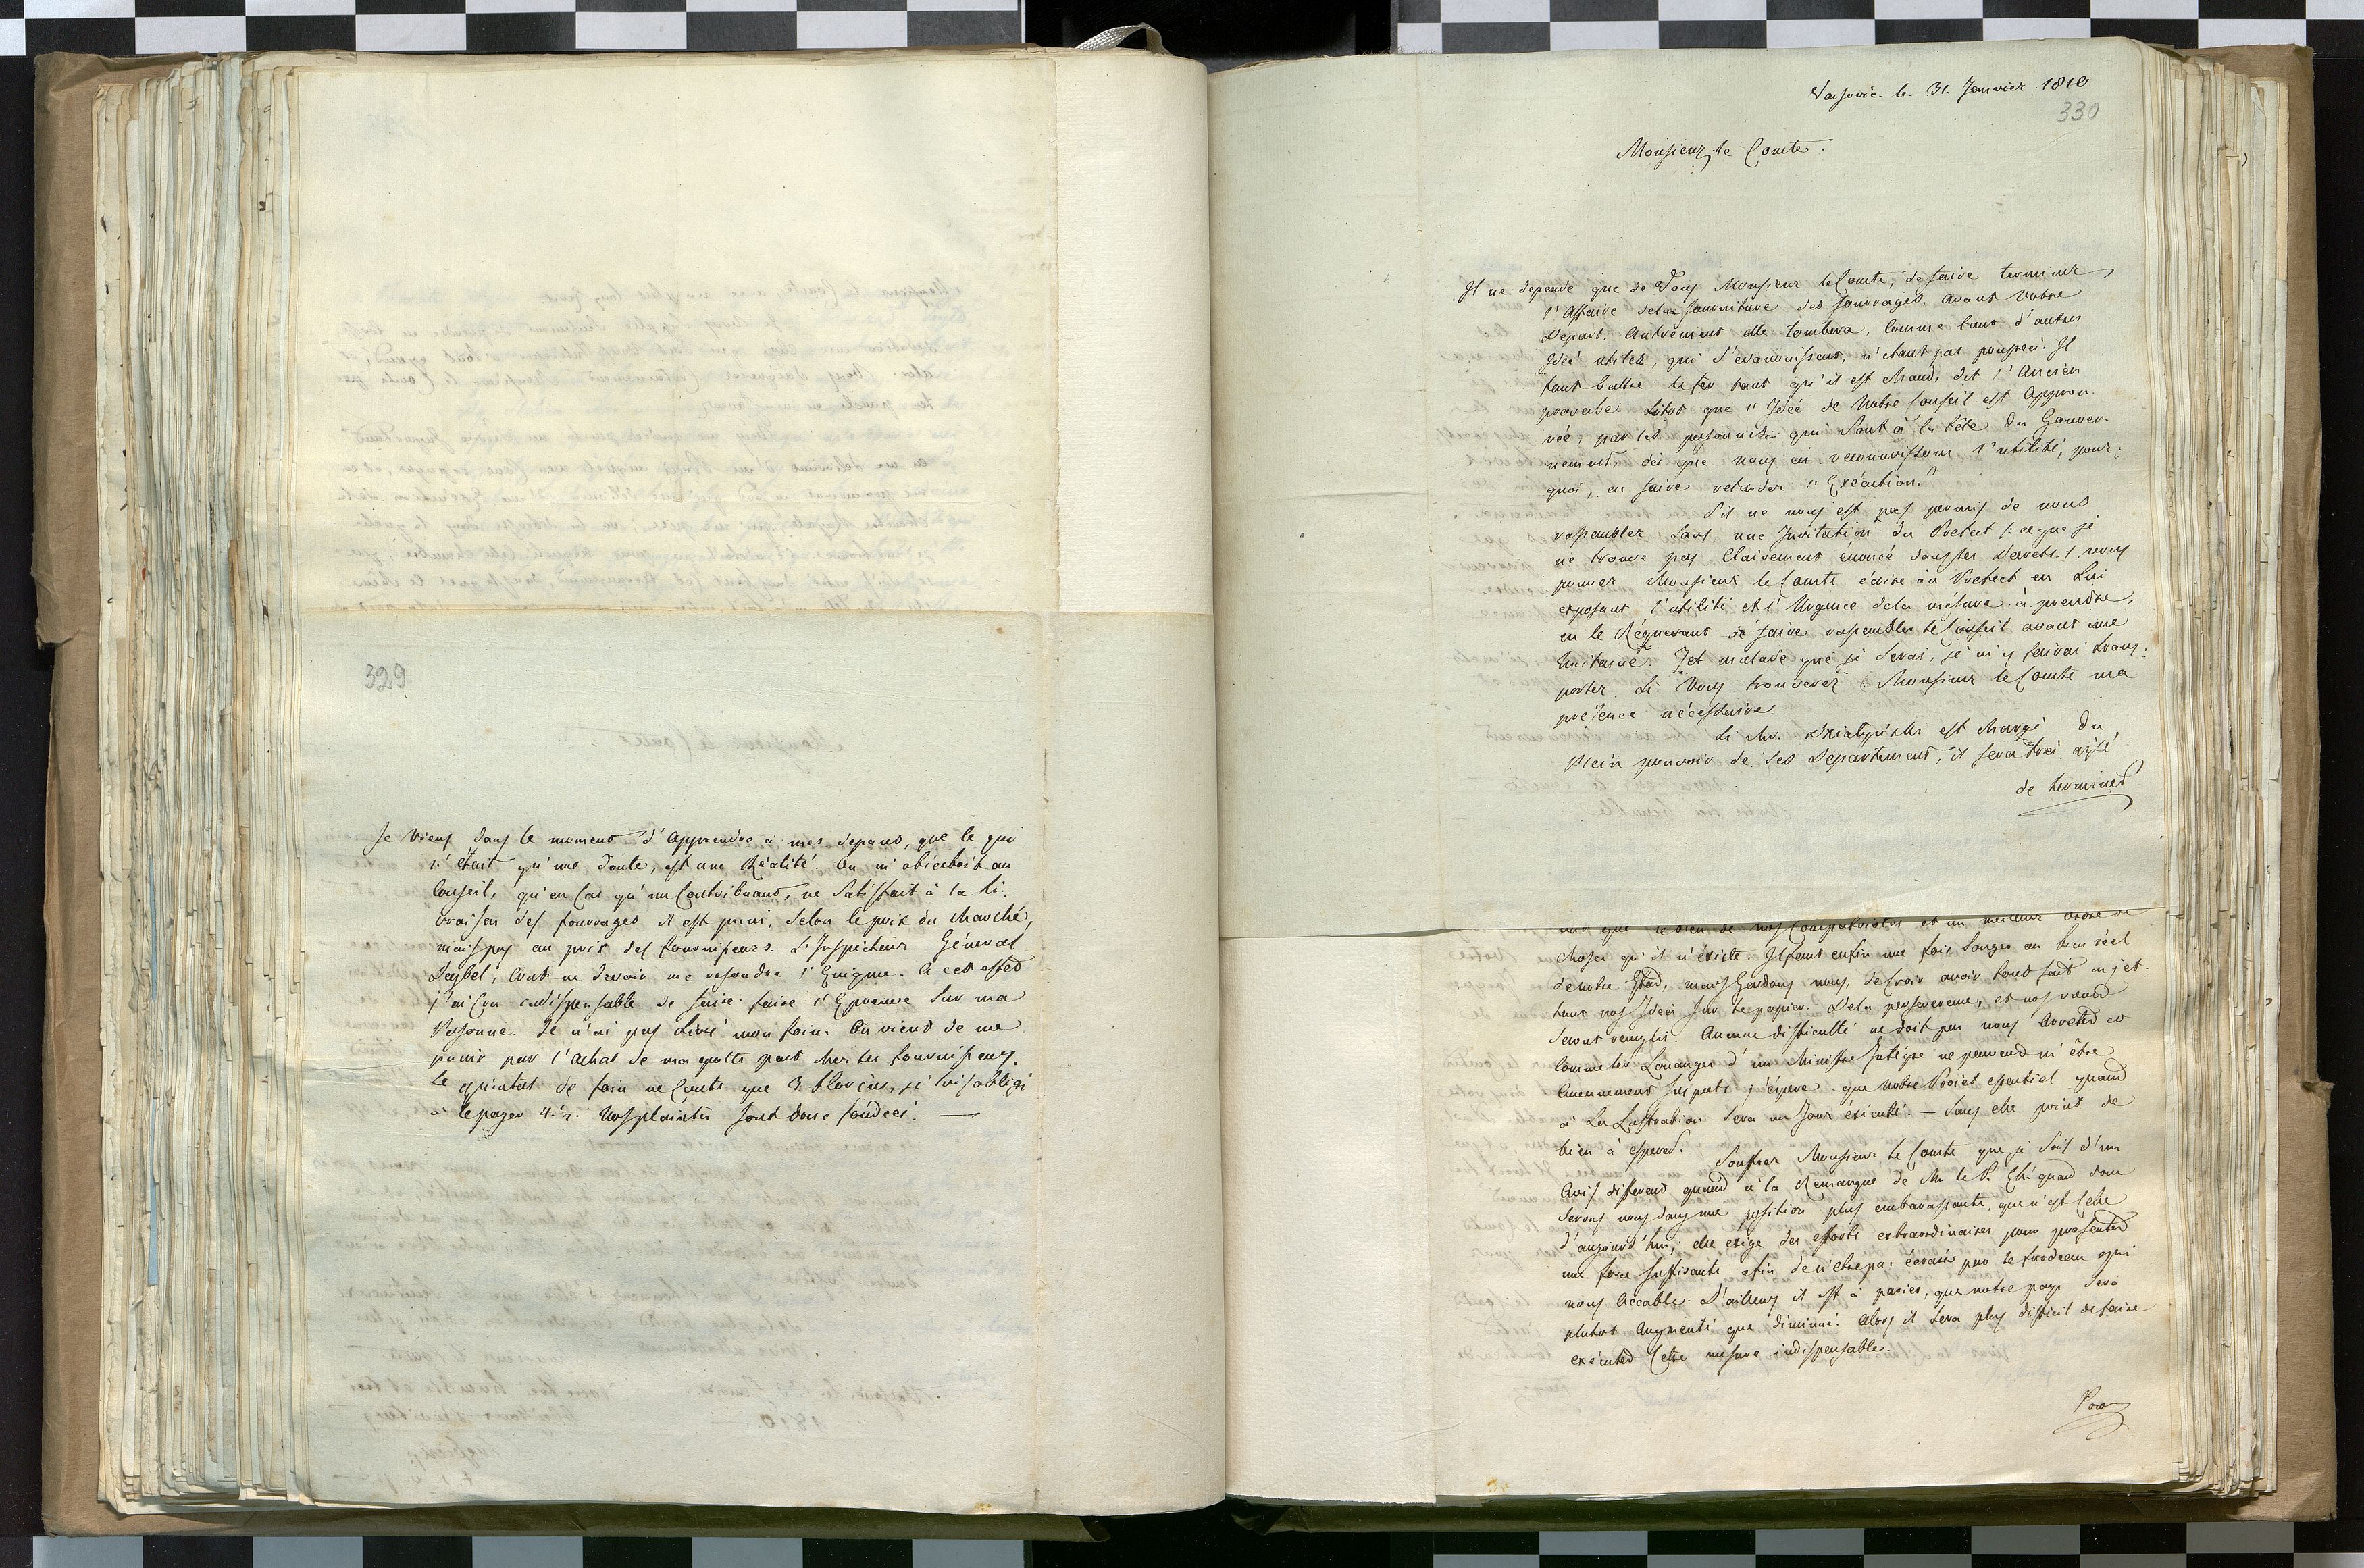 329
Je viens dans le moment d'apprendre à mes depens, que le qui
n'était qu'une doute, est une Réalité. On m'obiectoit au
Conseil, qu'en Cas qu'un Contribuant, ne Satisfait à la Li-
vraison des fourrages il est puni, Selon le prix du Marché,
mais pas au prix des fournisseurs. L'Inspecteur Géneral
Deybel, Crut ne devoir me resoudre l'Enigme. A cet effet
j'ai Cru indispensable de faire faire l'Epreuve Sur ma
Personne. Je n'ai pas Livré mon foin. On vient de me
punir par l'achat de ma quotte part chez les fournisseurs.
le quintal de foin ne Coute que 3 florins, je suis obligé
à le payer 4 ½. Nos plaintes sont donc fondées. —
Varsovie le 31. Janvier 1810
330
Monsieur le Comte.
Il ne depend que de Vous Monsieur le Comte, de faire terminer
l'Affaire de la fourniture des fourrages. avant Votre
Départ. Autrement elle tombera, Comme tant d'autres
Idée utiles, qui S'evanouissent, n'etant pas pousseés. Il
faut battre le fer tant qu'il est chaud, dit l'Ancien
proverbe. Sitot que l'Idée de Notre Conseil est Approu-
vée, par les personnes qui Sont à la tête du Gouver-
nement dès que nous en reconnoissons l'utilité, pour-
quoi, en faire retarder l'Exécution?
S'il ne nous est pas permis de nous
rassembler Sans une Invitation du Prefect /: ce que je
ne trouve pas Clairement énoncé dans les Decrets :/ vous
pouvez Monsieur le Comte écrire au Prefect en Lui
exposant l'utilité et l'Urgence de la mésure à prendre,
en le Réquerant de faire rassembler le Conseil avant une
huitaine. Tet malade que je Serai, je m'y ferai trans-
porter Si Vous trouverez Monsieur le Comte ma
présence nécessaire.
Si Mr. est chargé du
plein pouvoir de Ses Departement, il sera très aisé
de terminer
que le bien de nos Compatriotes et un meilleur ordre de
choses qu'il n'éxiste. Il faut enfin une fois Songer au bien réel
de notre Etat, mais Gardons nous, de Croir avoir tout fait en jet-
tant nos Idées Sur le papier. De la perseverence, et nos voeud
Seront remplis. Aucune difficulté ne doit pas nous Arreter et
Comme les Louanges d'un Ministre Intègre ne peuvent m'être
Aucunement suspects j'éspere que Notre Projet essentiel quand
à La Lustration Sera un Jour éxécuté. — Sans elle point de
bien à esperer.
Souffrez Monsieur le Comte que je Sois d'un
Avis different quand à la Remarque de Mr le P. quand donc
Serons nous dans une position plus embarassante, que n'est Celle
d'aujourd'hui; elle exige des efforts extraordinaires pour presenter
une force suffisante afin de n'etre pas écrasés par le fardeau qui
nous Accable. D'ailleurs il est à parier, que notre pays Sera
plutot Augmenté que diminué. Alors il Sera plus dificil de faire
exécuter Cette mesure indispensable.
Pour